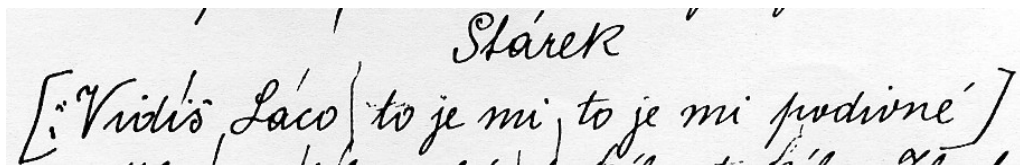 Stárek
[: Vidíš, Láco to je mi, to je mi podivné]